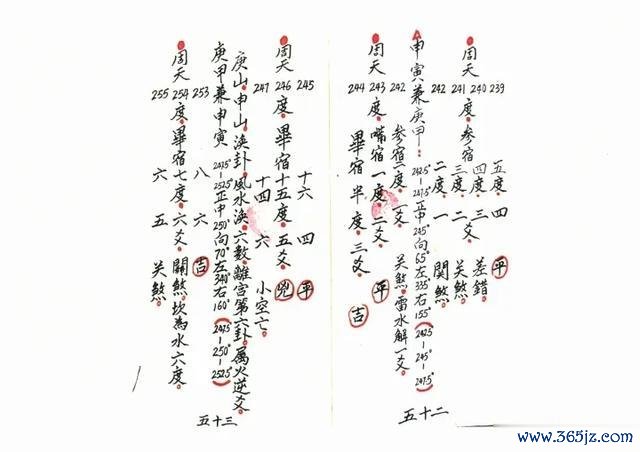 239 五度 四 平
周天 240 度 參宿 四度 三 差錯
241 三度 二 关煞
242 二度 一 関煞
申寅兼庚甲 242.5°-247.5° 正中 245° 向 65° 左 335 右 155° (242.5-245°-247.5°)
242 參宿一度 一爻 关煞 雷水解一爻
周天 243 度 嘴宿一度 二爻 平
244 畢宿半度 三爻 吉
五十二
245 十六 四 平
周天 246 度 畢宿十五度 五爻 兇
247 十四 六 小空亡
庚山申山涣卦風水涣六数離宫第六卦属火逆爻
庚甲兼申寅 247.5°-252.5° 正中 250° 向 70° 左 340° 右 160° (247.5-250°-252.5°)
253 八 六 吉
周天 254 度 畢宿七度 六爻 關煞 坎為水六度
255 六 五 关煞
五十三
www.365jz.com